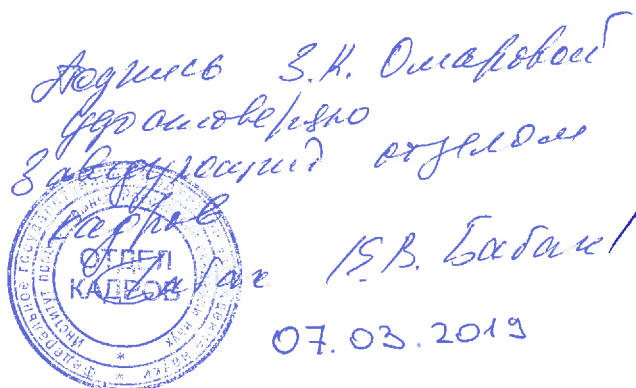 Подпись З.К. Омаровой
удостоверяю
Заведующий отделом
кадров
ОТДЕЛ
КАДРОВ
Бабак /Е.В. Бабак/
07.03.2019